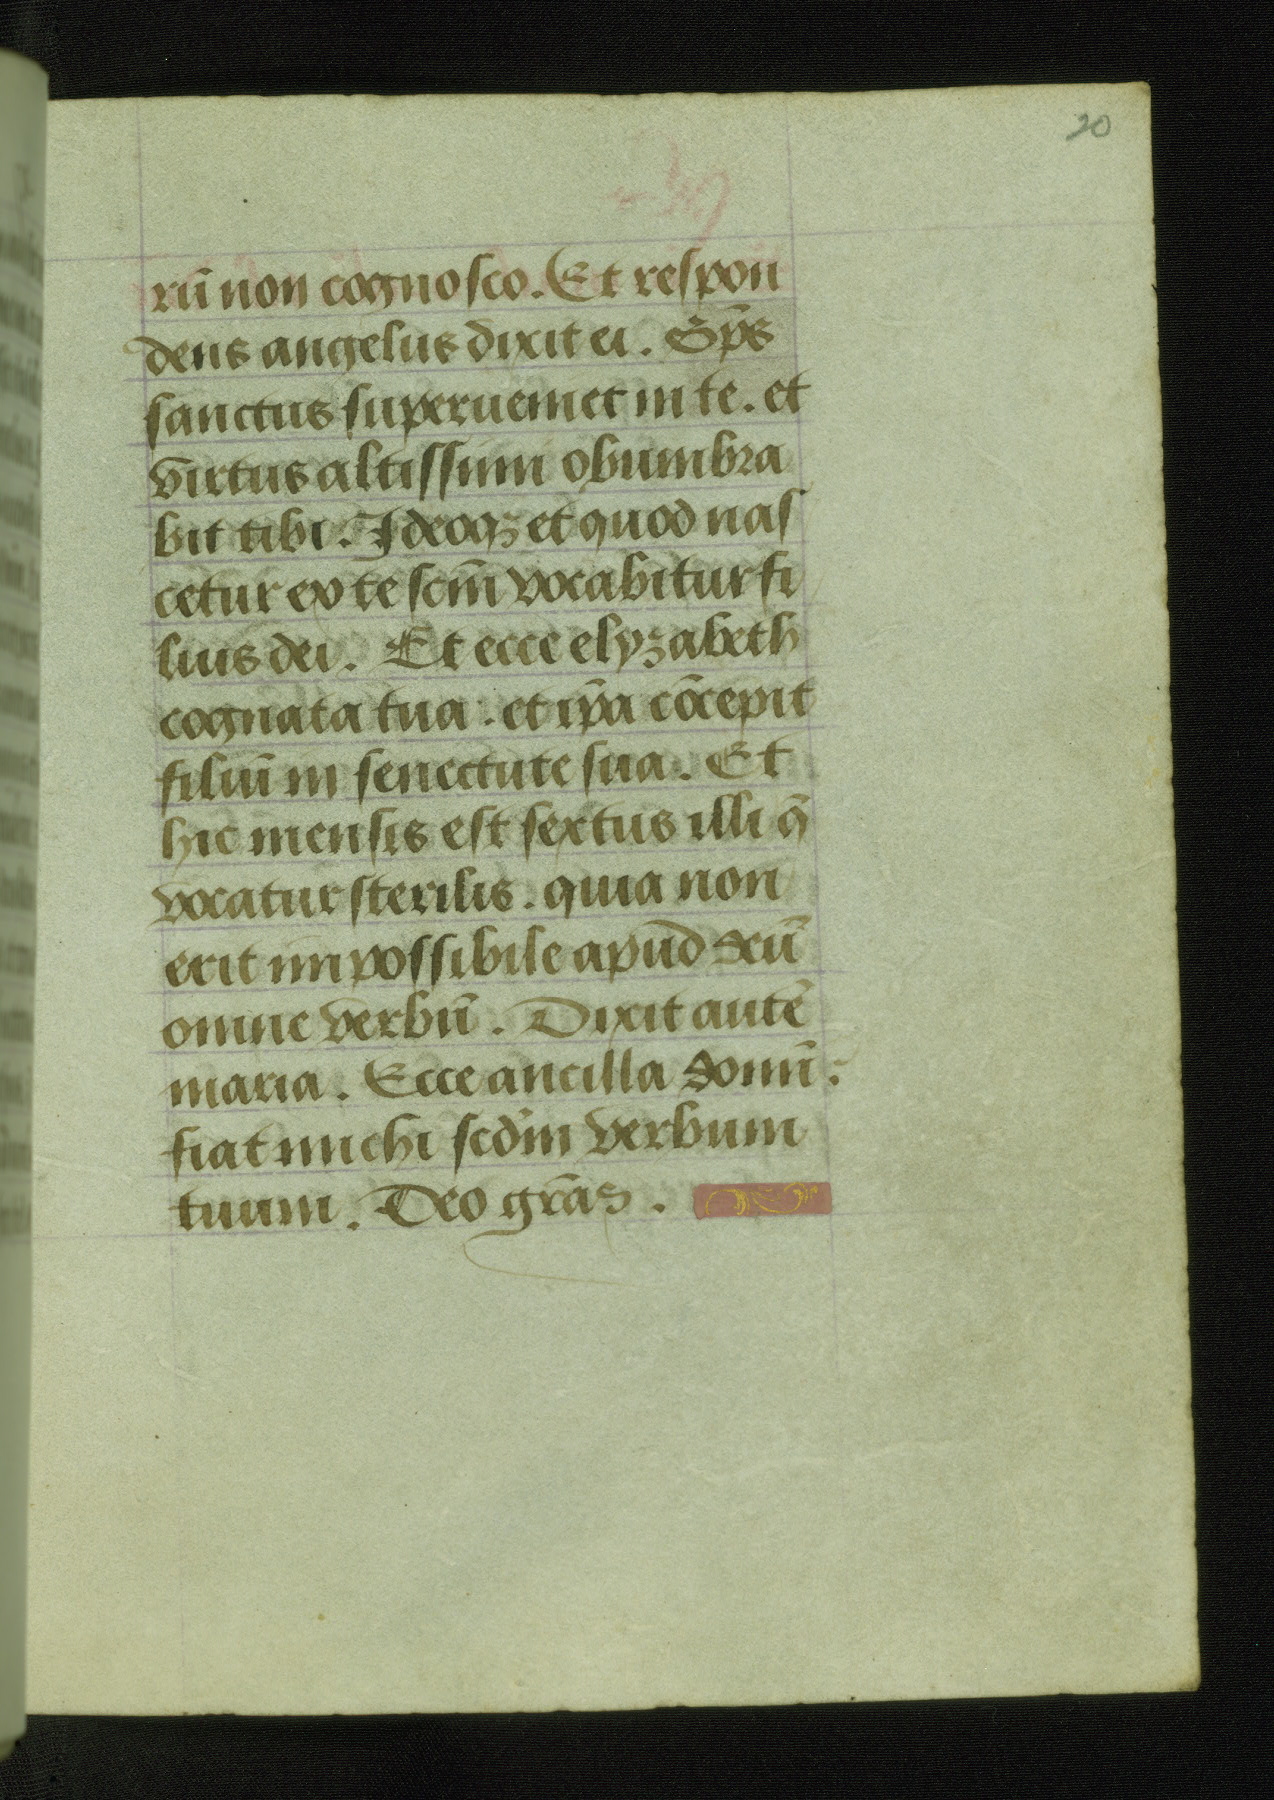 20
rū non cognosco. Et respon
dens angelus dixit ei. Sp̄s
sanctus superueniet in te. et
virtus altissimi obumbra
bit tibi. Ideoqꝫ et quod nas
cetur ex te scm̄ vocabitur fi
lius dei. Et ecce elyzabeth
cognata tua. et ip̄a cōcepit
filiū in senectute sua. Et
hic mensis est sextus illi q̄
vocatur sterilis. quia non
erit impossibile apud deū
omne verbū. Dixit autē
maria. Ecce ancilla domī:
fiat michi scdm̄ verbum
tuum. Deo gr̄as.